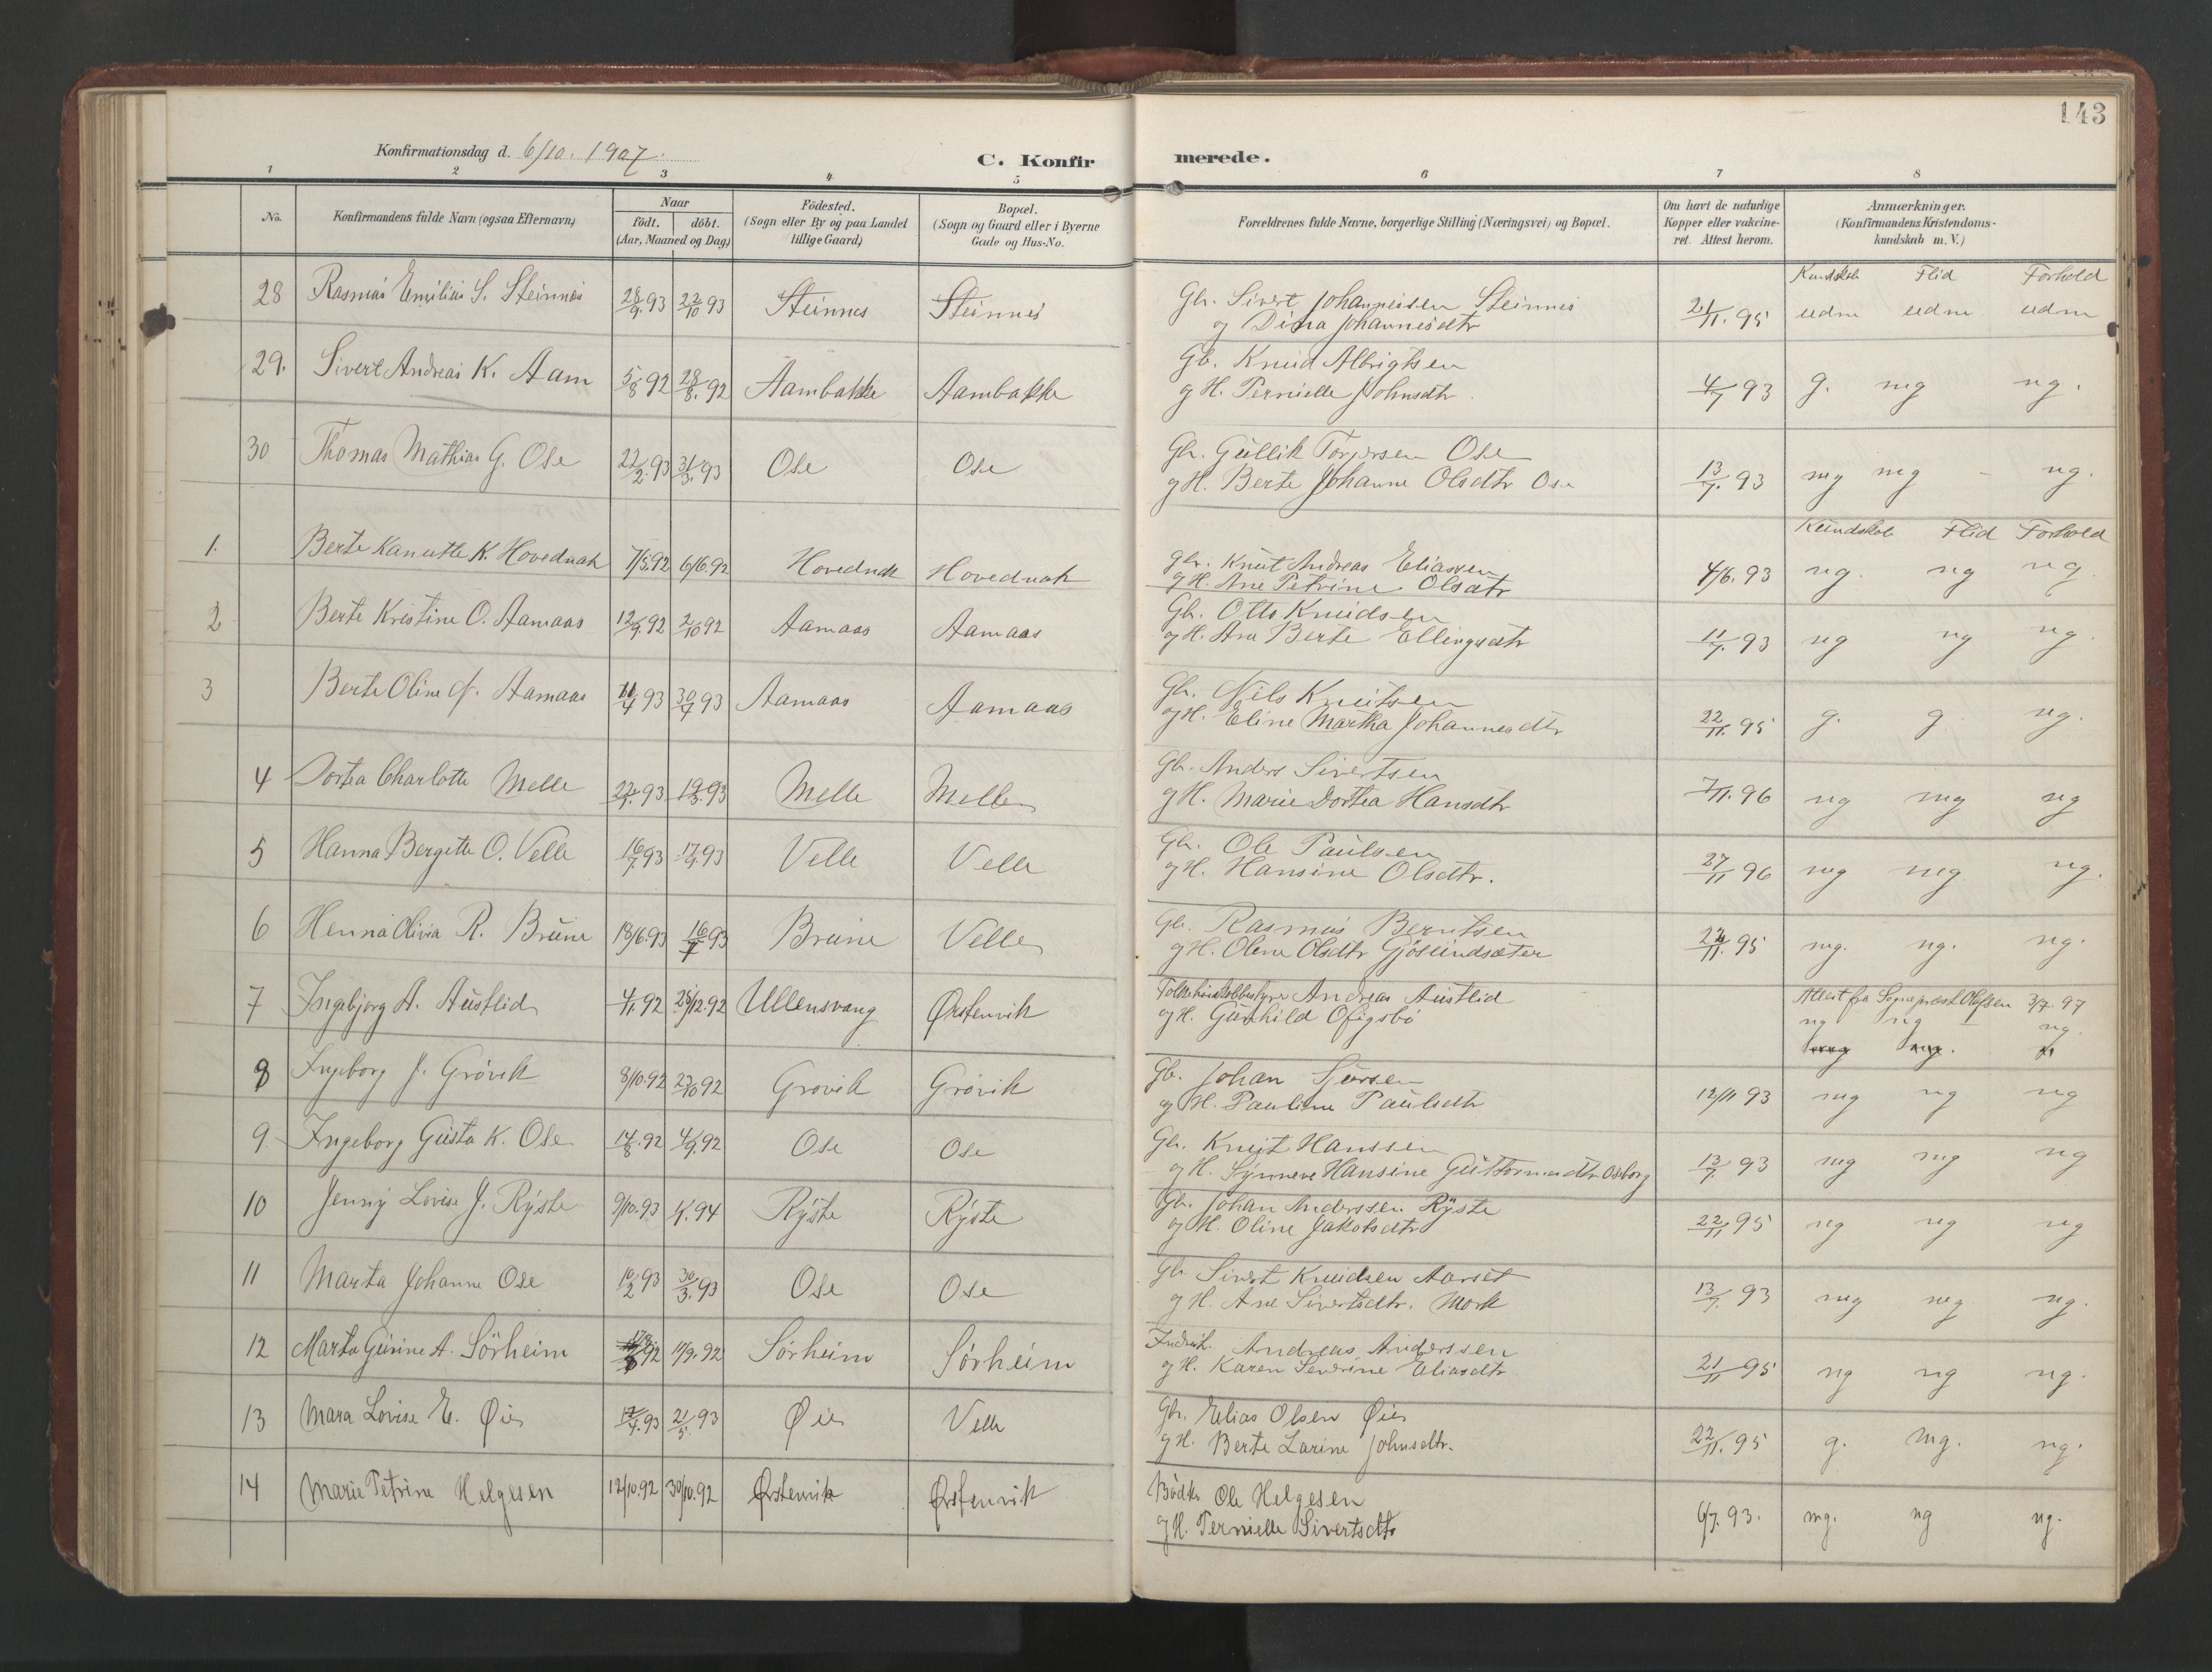 143
Konfirmationsdag d. 6/10. 1907.
C. Konfirmerede.
1 2 3 4 5 6 7 8
No.
Konfirmandens fulde Navn (ogsaa Efternavn)
Naar
födt. döbt.
(Aar, Maaned og Dag)
Födested.
(Sogn eller By og paa Landet
tillige Gaard)
Bopæl.
(Sogn og Gaard eller i Byerne
Gade og Hus-No.
Forældrenes fulde Navne, borgerlige Stilling (Næringsvei) og Bopæl.
Om havt de naturlige
Kopper eller vakcine-
ret. Attest herom.
Anmærkninger.
(Konfirmandens Kristendoms-
kundskab m. V.)
Kundskab Flid Forhold
28 Rasmus Emilius S. Steinnes 28/9.93 22/10 93 Steinnes Steinnes Gbr. Sivert Johannessen Steinnes 21/11.95 udm udm udm
og Dina Johannesdtr
29. Sivert Andreas K. Aam 5/8 92 28/8.92 Aambakke Aambakke Gb. Knud Albrigtsen 4/7 93 g. mg ng.
og H. Pernielle Johnsdtr.
30 Thomas Mathias G. Ose 22/2.93 31/3.93 Ose Ose Gbr. Gullik Torgersen Ose 13/7.93 mg mg - ng.
og H. Berte Johanne Olsdtr Ose
Kundskab Flid Forhold
1. Berte Kanutte K. Hovednak 7/5.92 6/6.92 Hovednak Hovednak gbr. Knut Andreas Eliassen 4/6.93 ng. ng ng
og H. Ane Petrine Olsdtr
2 Berte Kristine O. Aamaas 12/9.92 2/10 92 Aamaas Aamaas Gb. Otto Knudsen 11/7.93 ng ng ng.
og H. Ane Berte Ellingsdtr
3 Berte Oline N. Aamaas 11/4 93 30/4 93 Aamaas Aamaas Gbr. Nils Knutsen 22/11.95 g. g ng.
og H. Eline Martha Johannesdtr
4 Dortea Charlotte Melle 22/1.93 19/3.93 Melle Melle Gbr. Anders Sivertsen 7/11.96 ng mg ng
og H. Marie Dortea Hansdtr
5 Hanna Bergitte O. Velle 16/7.93 17/9.93 Velle Velle Gbr. Ole Paulsen 27/11 96 mg mg ng.
og H. Hansine Olsdtr.
6 Henna Olivia R. Brune 18/6.93 16/7 93 Brune Velle Gb. Rasmus Berntsen 22/11.95 mg. ng. ng.
og H. Olene Olsdtr Gjösundsæter
7 Ingebjorg A. Austlid 4/11.92 25/12.92 Ullensvang Ørstenvik Andreas Austlid Attest fra Sogneprest Olafsen 3/7.97
og H. Gunhild Ofigsbö ng ng - ng.
8 Ingeborg J. Grövik 8/10.92 23/10 92 Grovik Grövik Gb. Johan Sjursen 12/11 93 mg ng ng
og H. Pauline Paulsdtr
9 Ingeborg Gusta K. Ose 14/8.92 4/9.92 Ose Ose Gbr. Knut Hanssen 13/7.93 mg mg ng
og H. Synneve Hansine Guttormsdtr Osborg
10 Jenny Lovise J. Ryste 9/10.93 1/1.94 Ryste Ryste Gbr. Johan Anderssen Ryste 22/11.95 ng ng ng
og H. Oline Jakobsdtr
11 Marta Johanne Ose 10/2 93 30/3.93 Ose Ose Gbr Sivert Knudsen Aarset 13/7.93 mg mg ng.
og H. Ane Sivertsdtr. Mork
12 Marta Gurine A. Sörheim 92 11/9.92 Sörheim Sörheim Andreas Anderssen 21/11 95 ng ng ng.
og H. Karen Severine Eliasdtr
13 Mara Lovise E. Øie 17/4.93 21/5.93 Øie Velle Gbr. Elias Olsen Øie 22/11.95 g. mg. ng.
og H. Berte Larine Johnsdtr.
14 Marie Petrine Helgesen 12/10.92 30/10.92 Ørstenvik Ørstenvik Bödker Ole Helgesen 6/7.93. mg. ng ng.
og H. Pernielle Sivertsdtr